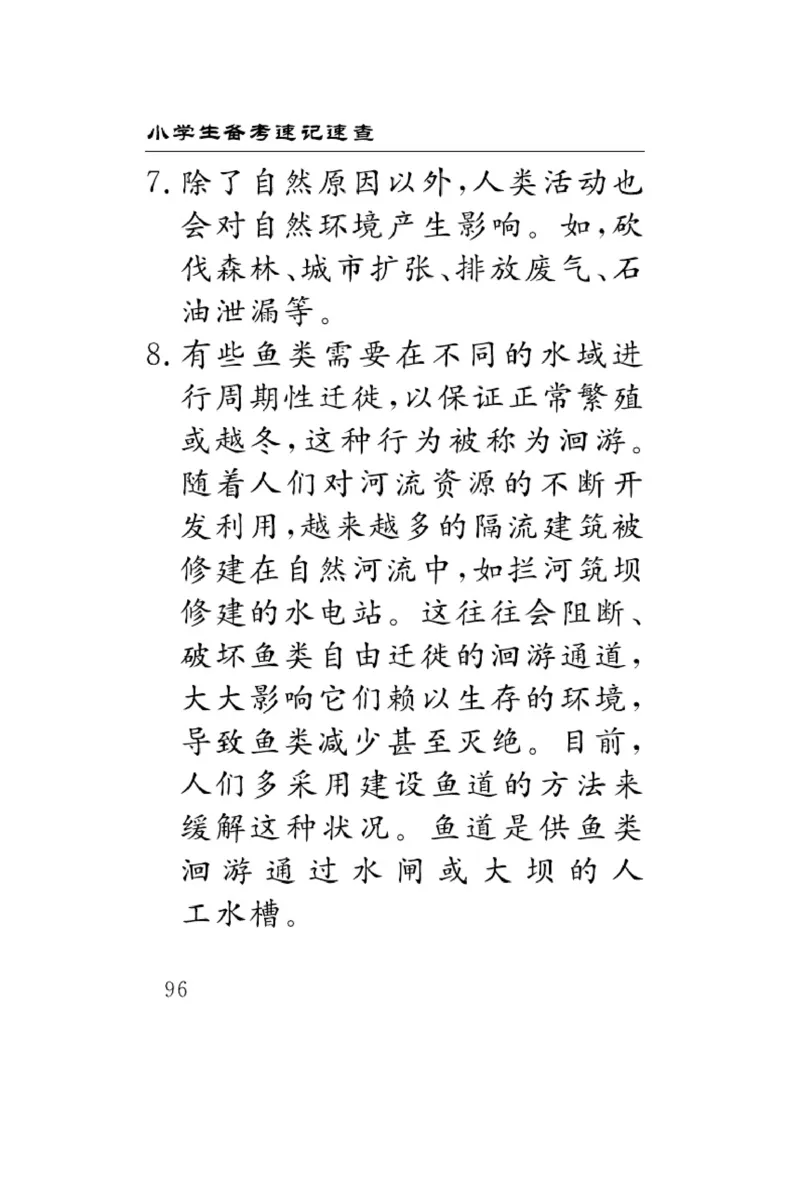 小学生备考速记速查
7. 除了自然原因以外,人类活动也
会对自然环境产生影响。如,砍
伐森林、城市扩张、排放废气、石
油泄漏等。
8. 有些鱼类需要在不同的水域进
行周期性迁徙,以保证正常繁殖
或越冬,这种行为被称为洄游。
随着人们对河流资源的不断开
发利用,越来越多的隔流建筑被
修建在自然河流中,如拦河筑坝
修建的水电站。这往往会阻断、
破坏鱼类自由迁徙的洄游通道,
大大影响它们赖以生存的环境,
导致鱼类减少甚至灭绝。目前,
人们多采用建设鱼道的方法来
缓解这种状况。鱼道是供鱼类
洄游通过水闸或大坝的人
工水槽。
96